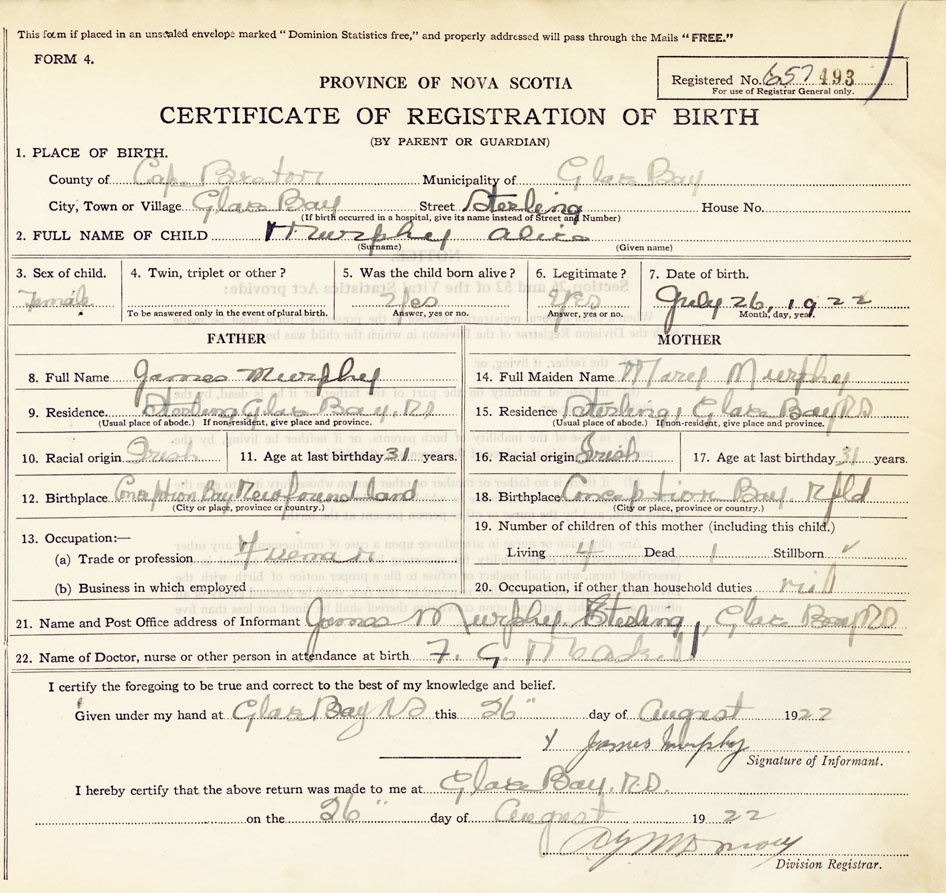 This form if placed in an unsealed envelope marked "Dominion Statistics free," and properly addressed will pass through the Mails "FREE."
FORM 4.
Registered No. 657 493
For use of Registrar General only.
PROVINCE OF NOVA SCOTIA
CERTIFICATE OF REGISTRATION OF BIRTH
(BY PARENT OR GUARDIAN)
1. PLACE OF BIRTH.
County of Cape Breton Municipality of Glace Bay
City, Town or Village Glace Bay Street Sterling House No.
(If birth occurred in a hospital, give its name instead of Street and Number)
2. FULL NAME OF CHILD Murphy Alice
(Surname) (Given name)
3. Sex of child. 4. Twin, triplet or other? 5. Was the child born alive? 6. Legitimate? 7. Date of birth.
Female Yes Yes July 26, 1922
To be answered only in the event of plural birth. Answer, yes or no. Answer, yes or no. Month, day, year.
FATHER MOTHER
8. Full Name James Murphy 14. Full Maiden Name Mary Murphy
9. Residence Sterling Glace Bay, RD 15. Residence Sterling, Glace Bay RD
(Usual place of abode.) If non-resident, give place and province. (Usual place of abode.) If non-resident, give place and province.
10. Racial origin Irish 11. Age at last birthday 31 years. 16. Racial origin Irish 17. Age at last birthday 31 years.
12. Birthplace Conception Bay Newfoundland 18. Birthplace Conception Bay. Nfld
(City or place, province or country.) (City or place, province or country.)
19. Number of children of this mother (including this child.)
13. Occupation:—
(a) Trade or profession Living 4 Dead 1 Stillborn ✓
(b) Business in which employed 20. Occupation, if other than household duties
21. Name and Post Office address of Informant James Murphy Sterling, Glace Bay RD
22. Name of Doctor, nurse or other person in attendance at birth F. G.
I certify the foregoing to be true and correct to the best of my knowledge and belief.
Given under my hand at Glace Bay this 26" day of August 1922
James Murphy
Signature of Informant.
I hereby certify that the above return was made to me at Glace Bay, RD.
on the 26" day of August 1922
Division Registrar.